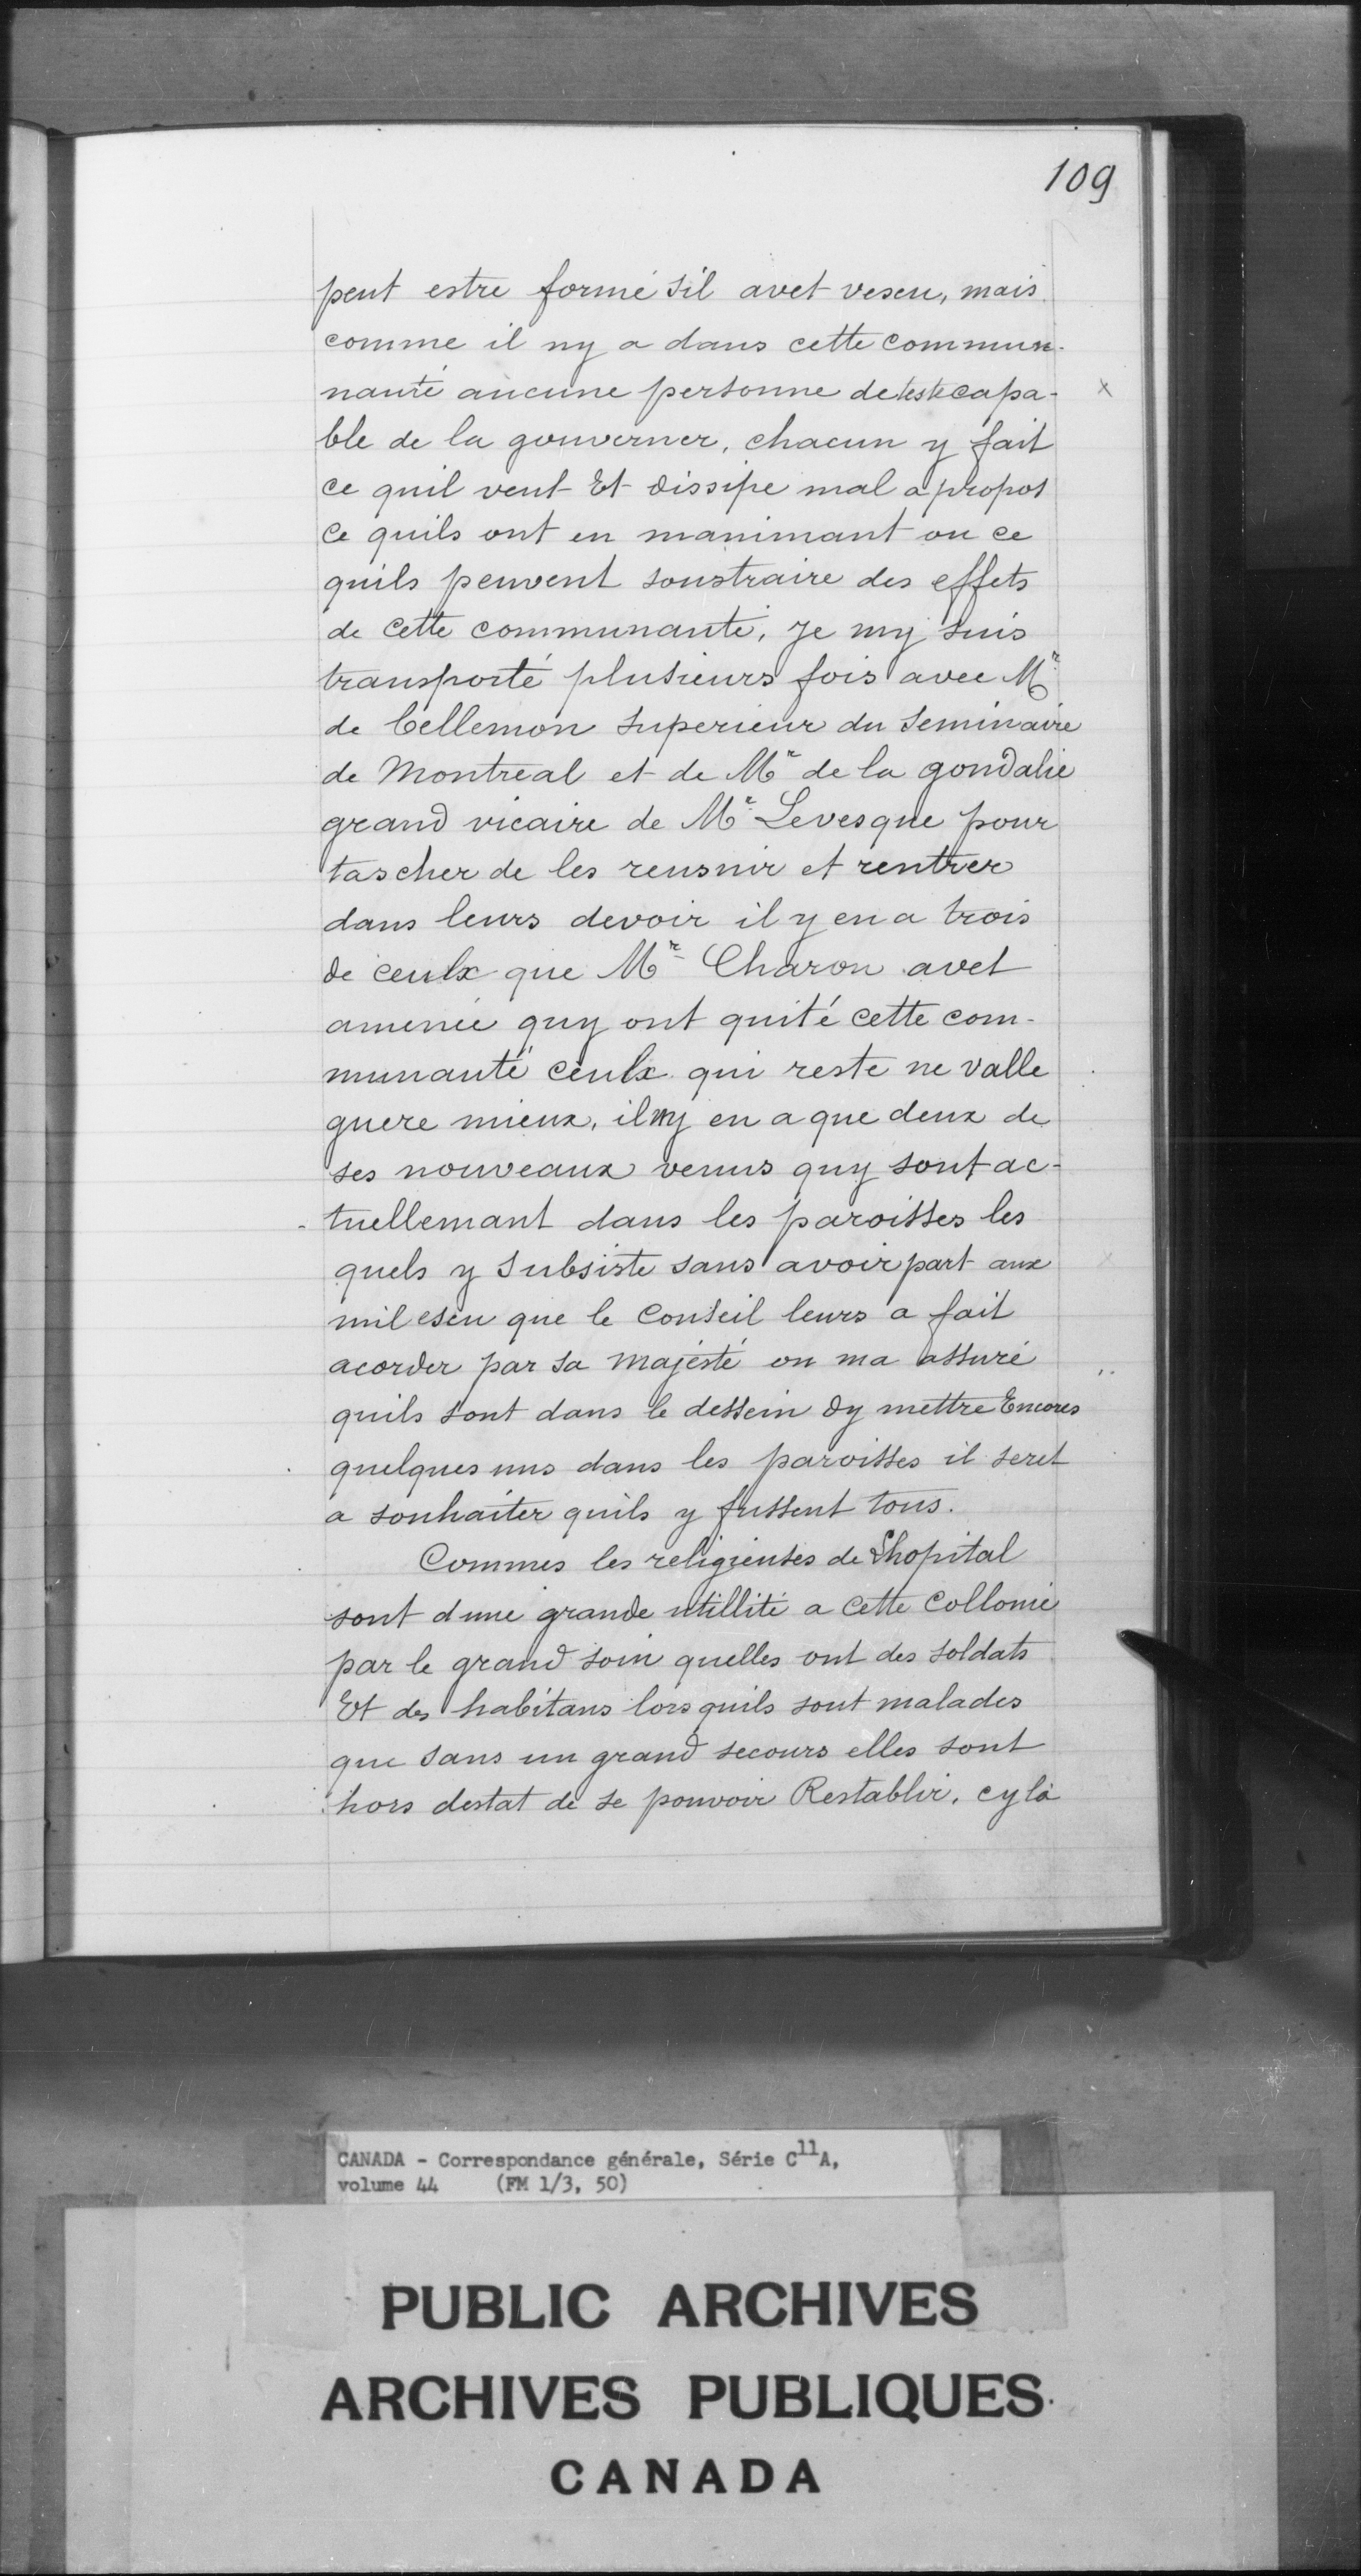 109
peut estre formé sil avet vescu, mais
comme il ny a dans cette commun-
nauté aucune personne de teste capa-
ble de la gouverner, chacun y fait
ce quil veut Et dissipe mal a propos
ce quils ont en manimant ou ce
quils peuvent soustraire des effets
de cette communauté, Je my suis
transporté plusieurs fois avec Mr
de bellemon superieur du Seminaire
de Montreal et de Mr de la gondalie
grand vicaire de Mr Levesque pour
tascher de les reusnir et rentrer
dans leurs devoir il y en a trois
de ceulx que Mr Charon avet
amenée quy ont quité cette com-
munauté ceulx qui reste ne valle
guere mieux, il ny en a que deux de
ses nouveaux venus quy sont ac-
tuellemant dans les paroisses les
quels y subsiste sans avoir part aux
mil escu que le Conseil leurs a fait
acorder par sa majesté on ma assuré
quils sont dans le dessein dy mettre Encores
quelques uns dans les paroisses il seret
a souhaiter quils y fussent tous.
Commes les religieuses de Lhopital
sont dune grande utillité a cette Collonie
par le grand soin quelles ont des soldats
Et des habitans lors quils sont malades
que sans un grand secours elles sont
hors destat de se pouvoir Restablir, cy la
CANADA - Correspondance générale, Série C11A,
volume 44 (FM 1/3, 50)
PUBLIC ARCHIVES
ARCHIVES PUBLIQUES
CANADA